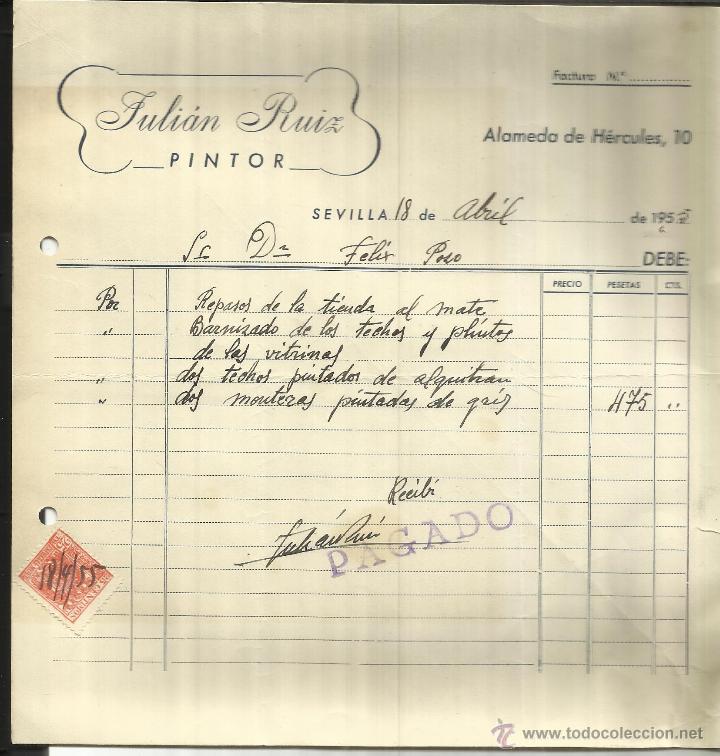 Factura N.º
Julián Ruiz
PINTOR
Alameda de Hércules, 10
SEVILLA 18 de Abril de 195
Sr Dn Felix Poso
DEBE:
PRECIO PESETAS CTS.
Por Repasos de la tienda al mate
" Barnizado de los techos y plintos
de las vitrinas
" dos techos pintados de alquitran
" dos monteras pintadas de gris 475 ..
Recibí
Julián Ruiz
PAGADO
18/4/55
www.todocoleccion.net